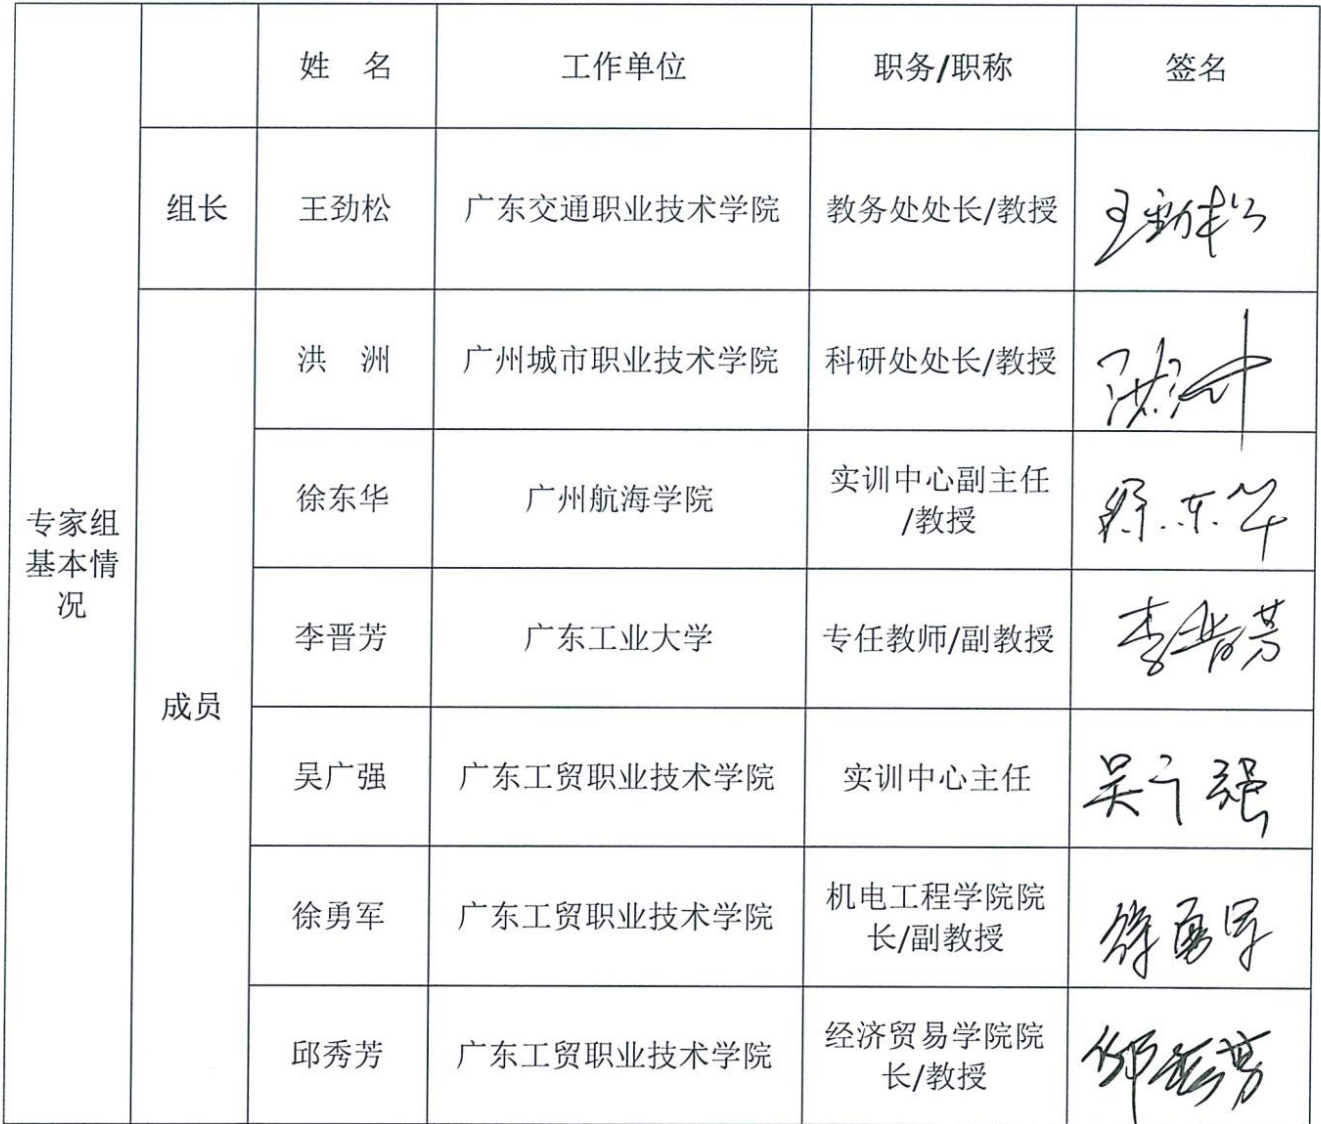 姓 名 工作单位 职务/职称 签名
组长 王劲松 广东交通职业技术学院 教务处处长/教授 王劲松
洪 洲 广州城市职业技术学院 科研处处长/教授 洪洲
徐东华 广州航海学院 实训中心副主任
/教授 徐东华
专家组
基本情
况
李晋芳 广东工业大学 专任教师/副教授 李晋芳
成员
吴广强 广东工贸职业技术学院 实训中心主任 吴广强
徐勇军 广东工贸职业技术学院 机电工程学院院
长/副教授 徐勇军
邱秀芳 广东工贸职业技术学院 经济贸易学院院
长/教授 邱秀芳